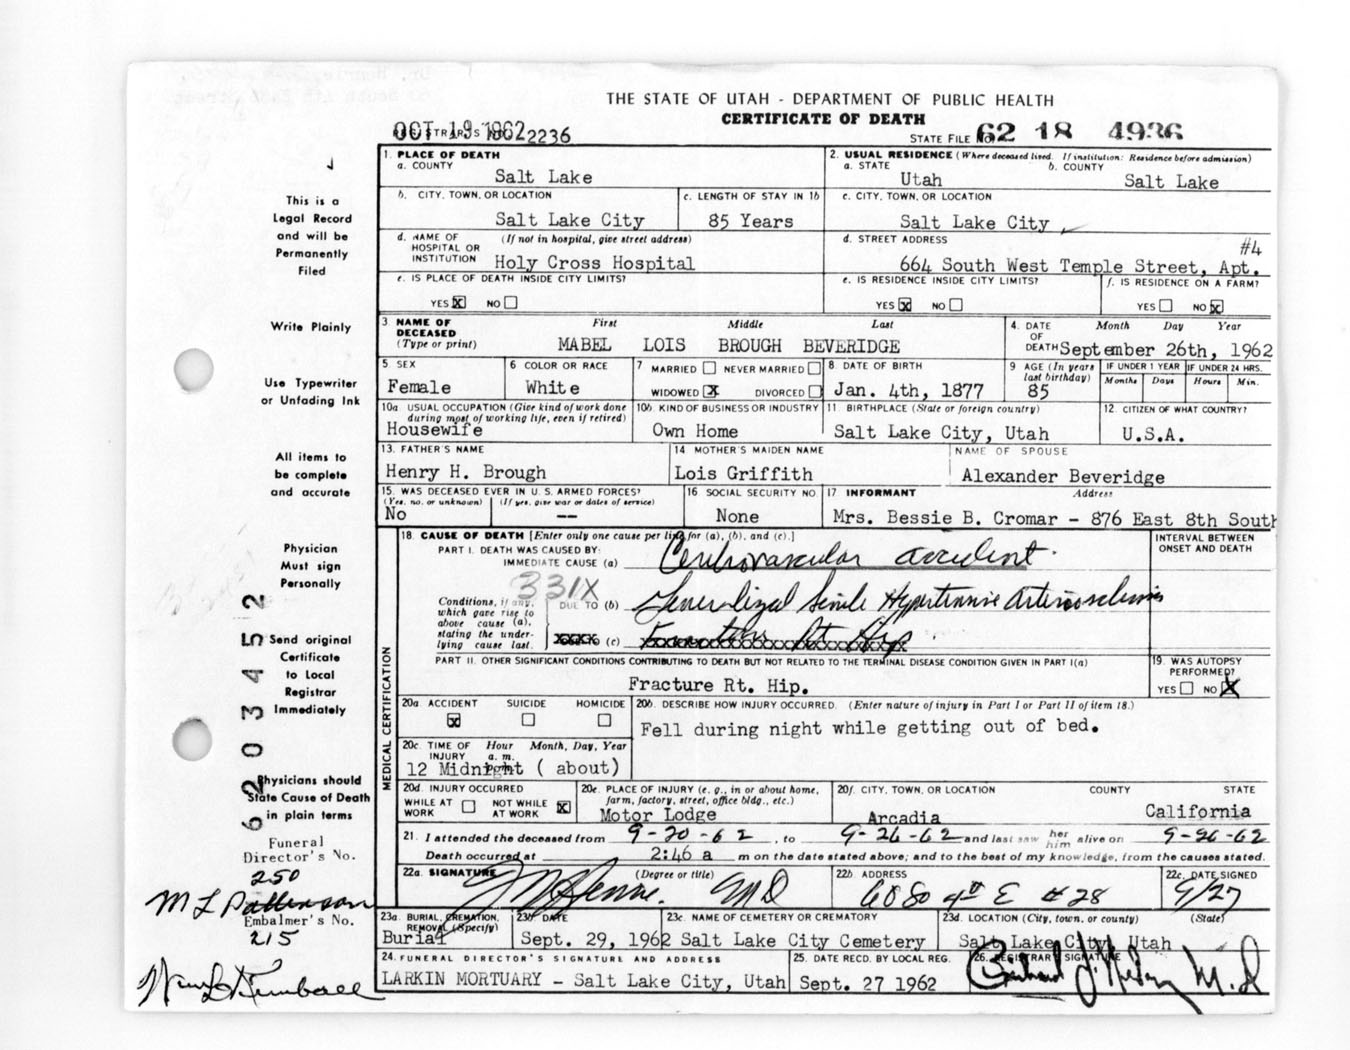 THE STATE OF UTAH - DEPARTMENT OF PUBLIC HEALTH
CERTIFICATE OF DEATH
OCT 19 1962 2236
STATE FILE NO. 62 18 4936
This is a
Legal Record
and will be
Permanently
Filed
Write Plainly
Use Typewriter
or Unfading Ink
All items to
be complete
and accurate
Physician
Must sign
Personally
Send original
Certificate
to Local
Registrar
Immediately
Physicians should
State Cause of Death
in plain terms
Funeral
Director's No.
250
M L Patterson
Embalmer's No.
215
62 034452
1. PLACE OF DEATH
a. COUNTY
Salt Lake
2. USUAL RESIDENCE (Where deceased lived. If institution: Residence before admission)
a. STATE b. COUNTY
Utah Salt Lake
b. CITY, TOWN, OR LOCATION
Salt Lake City
c. LENGTH OF STAY IN 1b
85 Years
c. CITY, TOWN, OR LOCATION
Salt Lake City
d. NAME OF HOSPITAL OR INSTITUTION (If not in hospital, give street address)
Holy Cross Hospital
d. STREET ADDRESS
#4
664 South West Temple Street, Apt.
e. IS PLACE OF DEATH INSIDE CITY LIMITS?
YES X NO
e. IS RESIDENCE INSIDE CITY LIMITS?
YES X NO
f. IS RESIDENCE ON A FARM?
YES NO X
3. NAME OF DECEASED (Type or print) First Middle Last
MABEL LOIS BROUGH BEVERIDGE
4. DATE OF DEATH Month Day Year
September 26th, 1962
5 SEX
Female
6 COLOR OR RACE
White
7 MARRIED NEVER MARRIED
WIDOWED X DIVORCED
8. DATE OF BIRTH
Jan. 4th, 1877
9 AGE (In years last birthday)
85
IF UNDER 1 YEAR IF UNDER 24 HRS.
Months Days Hours Min.
10a USUAL OCCUPATION (Give kind of work done during most of working life, even if retired)
Housewife
10b. KIND OF BUSINESS OR INDUSTRY
Own Home
11 BIRTHPLACE (State or foreign country)
Salt Lake City, Utah
12. CITIZEN OF WHAT COUNTRY?
U.S.A.
13. FATHER'S NAME
Henry H. Brough
14 MOTHER'S MAIDEN NAME
Lois Griffith
NAME OF SPOUSE
Alexander Beveridge
15. WAS DECEASED EVER IN U. S. ARMED FORCES?
(Yes, no, or unknown) (If yes, give war or dates of service)
No --
16 SOCIAL SECURITY NO.
None
17 INFORMANT Address
Mrs. Bessie B. Cromar - 876 East 8th South
18. CAUSE OF DEATH [Enter only one cause per line for (a), (b), and (c).]
PART I. DEATH WAS CAUSED BY:
IMMEDIATE CAUSE (a) Cerebrovascular accident.
INTERVAL BETWEEN ONSET AND DEATH
331X
Conditions, if any, which gave rise to above cause (a), stating the underlying cause last.
DUE TO (b) Generalized Senile Hypertensive Arteriosclerosis
(c) Fracture Rt Hip.
PART II. OTHER SIGNIFICANT CONDITIONS CONTRIBUTING TO DEATH BUT NOT RELATED TO THE TERMINAL DISEASE CONDITION GIVEN IN PART I(a)
Fracture Rt. Hip.
19. WAS AUTOPSY PERFORMED?
YES NO X
MEDICAL CERTIFICATION
20a. ACCIDENT SUICIDE HOMICIDE
X
20b. DESCRIBE HOW INJURY OCCURRED. (Enter nature of injury in Part I or Part II of item 18.)
Fell during night while getting out of bed.
20c. TIME OF INJURY Hour Month, Day, Year
a. m.
12 Midnight ( about)
20d. INJURY OCCURRED
WHILE AT WORK NOT WHILE AT WORK X
20e. PLACE OF INJURY (e. g., in or about home, farm, factory, street, office bldg., etc.)
Motor Lodge
20f. CITY, TOWN, OR LOCATION COUNTY STATE
Arcadia California
21. I attended the deceased from 9-20-62, to 9-26-62 and last saw her him alive on 9-26-62
Death occurred at 2:46 a m on the date stated above; and to the best of my knowledge, from the causes stated.
22a. SIGNATURE (Degree or title)
MD
22b. ADDRESS
60 So 4th E #28
22c. DATE SIGNED
9/27
23a. BURIAL, CREMATION, REMOVAL (Specify)
Burial
23b. DATE
Sept. 29, 1962
23c. NAME OF CEMETERY OR CREMATORY
Salt Lake City Cemetery
23d. LOCATION (City, town, or county) (State)
Salt Lake City, Utah
24. FUNERAL DIRECTOR'S SIGNATURE AND ADDRESS
LARKIN MORTUARY - Salt Lake City, Utah
25. DATE RECD. BY LOCAL REG.
Sept. 27 1962
26. REGISTRAR'S SIGNATURE
M.D.